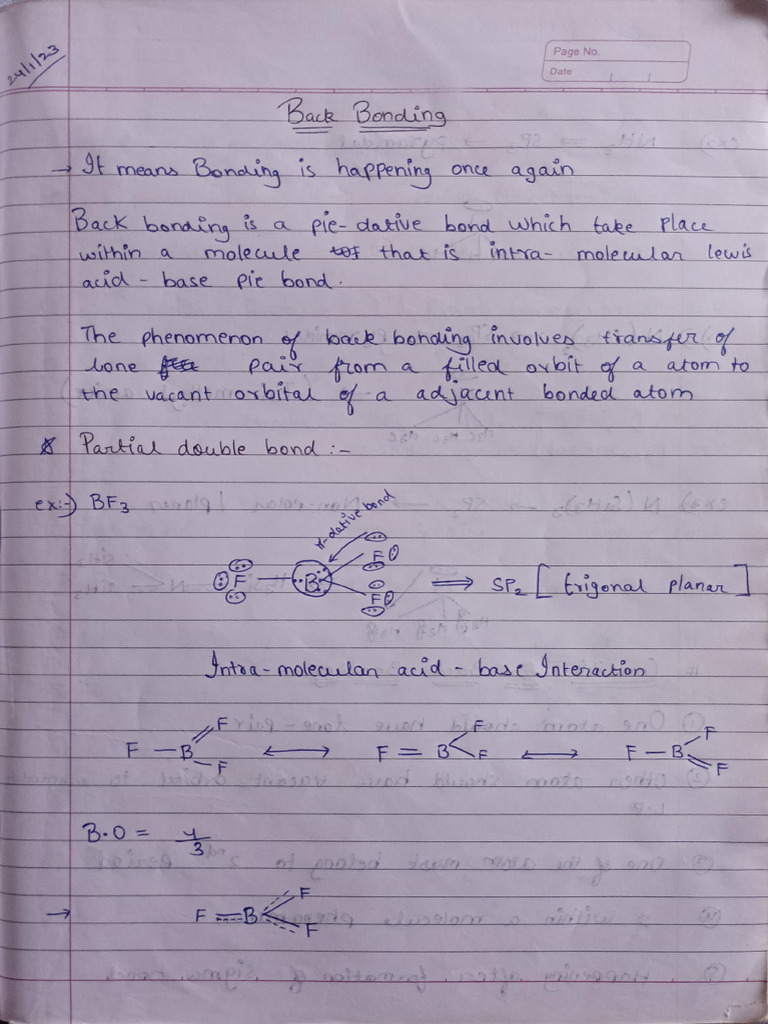 24/1/23
Page No.
Date
Back Bonding
→ It means Bonding is happening once again
Back bonding is a pie-dative bond which take place
within a molecule that is intra- molecular lewis
acid - base pie bond.
The phenomenon of back bonding involves transfer of
lone pair from a filled orbit of a atom to
the vacant orbital of a adjacent bonded atom
* Partial double bond :-
ex:-) BF3
π-dative bond
F — B F F ⟹ SP2 [ trigonal planar ]
Intra-molecular acid - base Interaction
F — B = F F ⟷ F = B F F ⟷ F — B F = F
B.O = 4/3
→ F = B F F